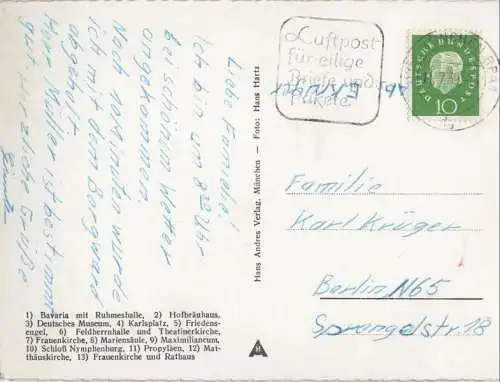 Liebe Familie!
Ich bin um 8 30 Uhr
bei schönem Wetter
angekommen.
Nach Minuten wurde
ich mit dem Borgward
abgeholt.
Herr Müller ist bestimmt
gut. Herzliche Grüße
Luftpost
für eilige
Briefe und
Pakete
DEUTSCHE BUNDESPOST
10
Ab. E. Krüger
Hans Andres Verlag, München – Foto: Hans Hartz
Familie
Karl Krüger
Berlin N65
Sprengelstr. 18
1) Bavaria mit Ruhmeshalle, 2) Hofbräuhaus,
3) Deutsches Museum, 4) Karlsplatz, 5) Friedens-
engel, 6) Feldherrnhalle und Theatinerkirche,
7) Frauenkirche, 8) Mariensäule, 9) Maximilianeum,
10) Schloß Nymphenburg, 11) Propyläen, 12) Mat-
thäuskirche, 13) Frauenkirche und Rathaus